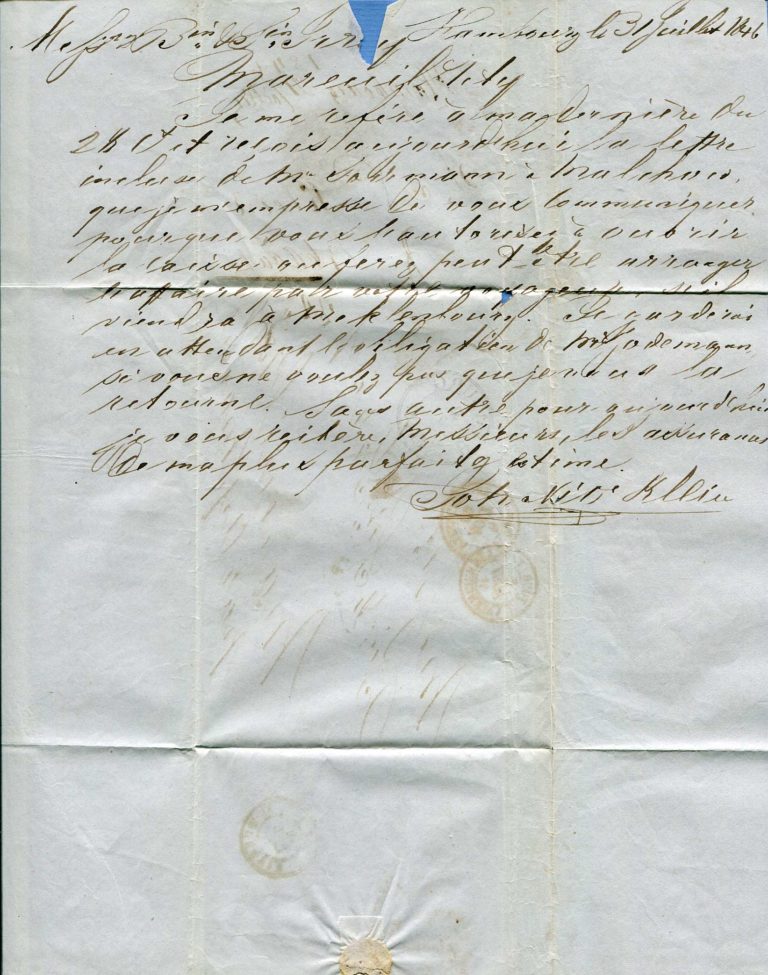 Mess.rs B.in & F.in Hambourg le 31 Juillet 1846
Mareuil s/ Ay
Je me réfère à ma dernière du
28 Ct et reçois aujourd'hui la lettre
incluse de Mr à Malchow,
que je m'empresse de vous communiquer
pour que vous l'autorisez à ouvrir
la caisse ou ferez peut être arranger
l'affaire par votre voyageur, s'il
viendra a Meklenbourg. Je garderai
en attendant l'obligation de Mr
si vous ne voulez pas que je vous la
retourne. Sans autre pour aujourd'hui
je vous réitère, Messieurs, les assurances
de ma plus parfaite estime.
Joh. Nic. Klein